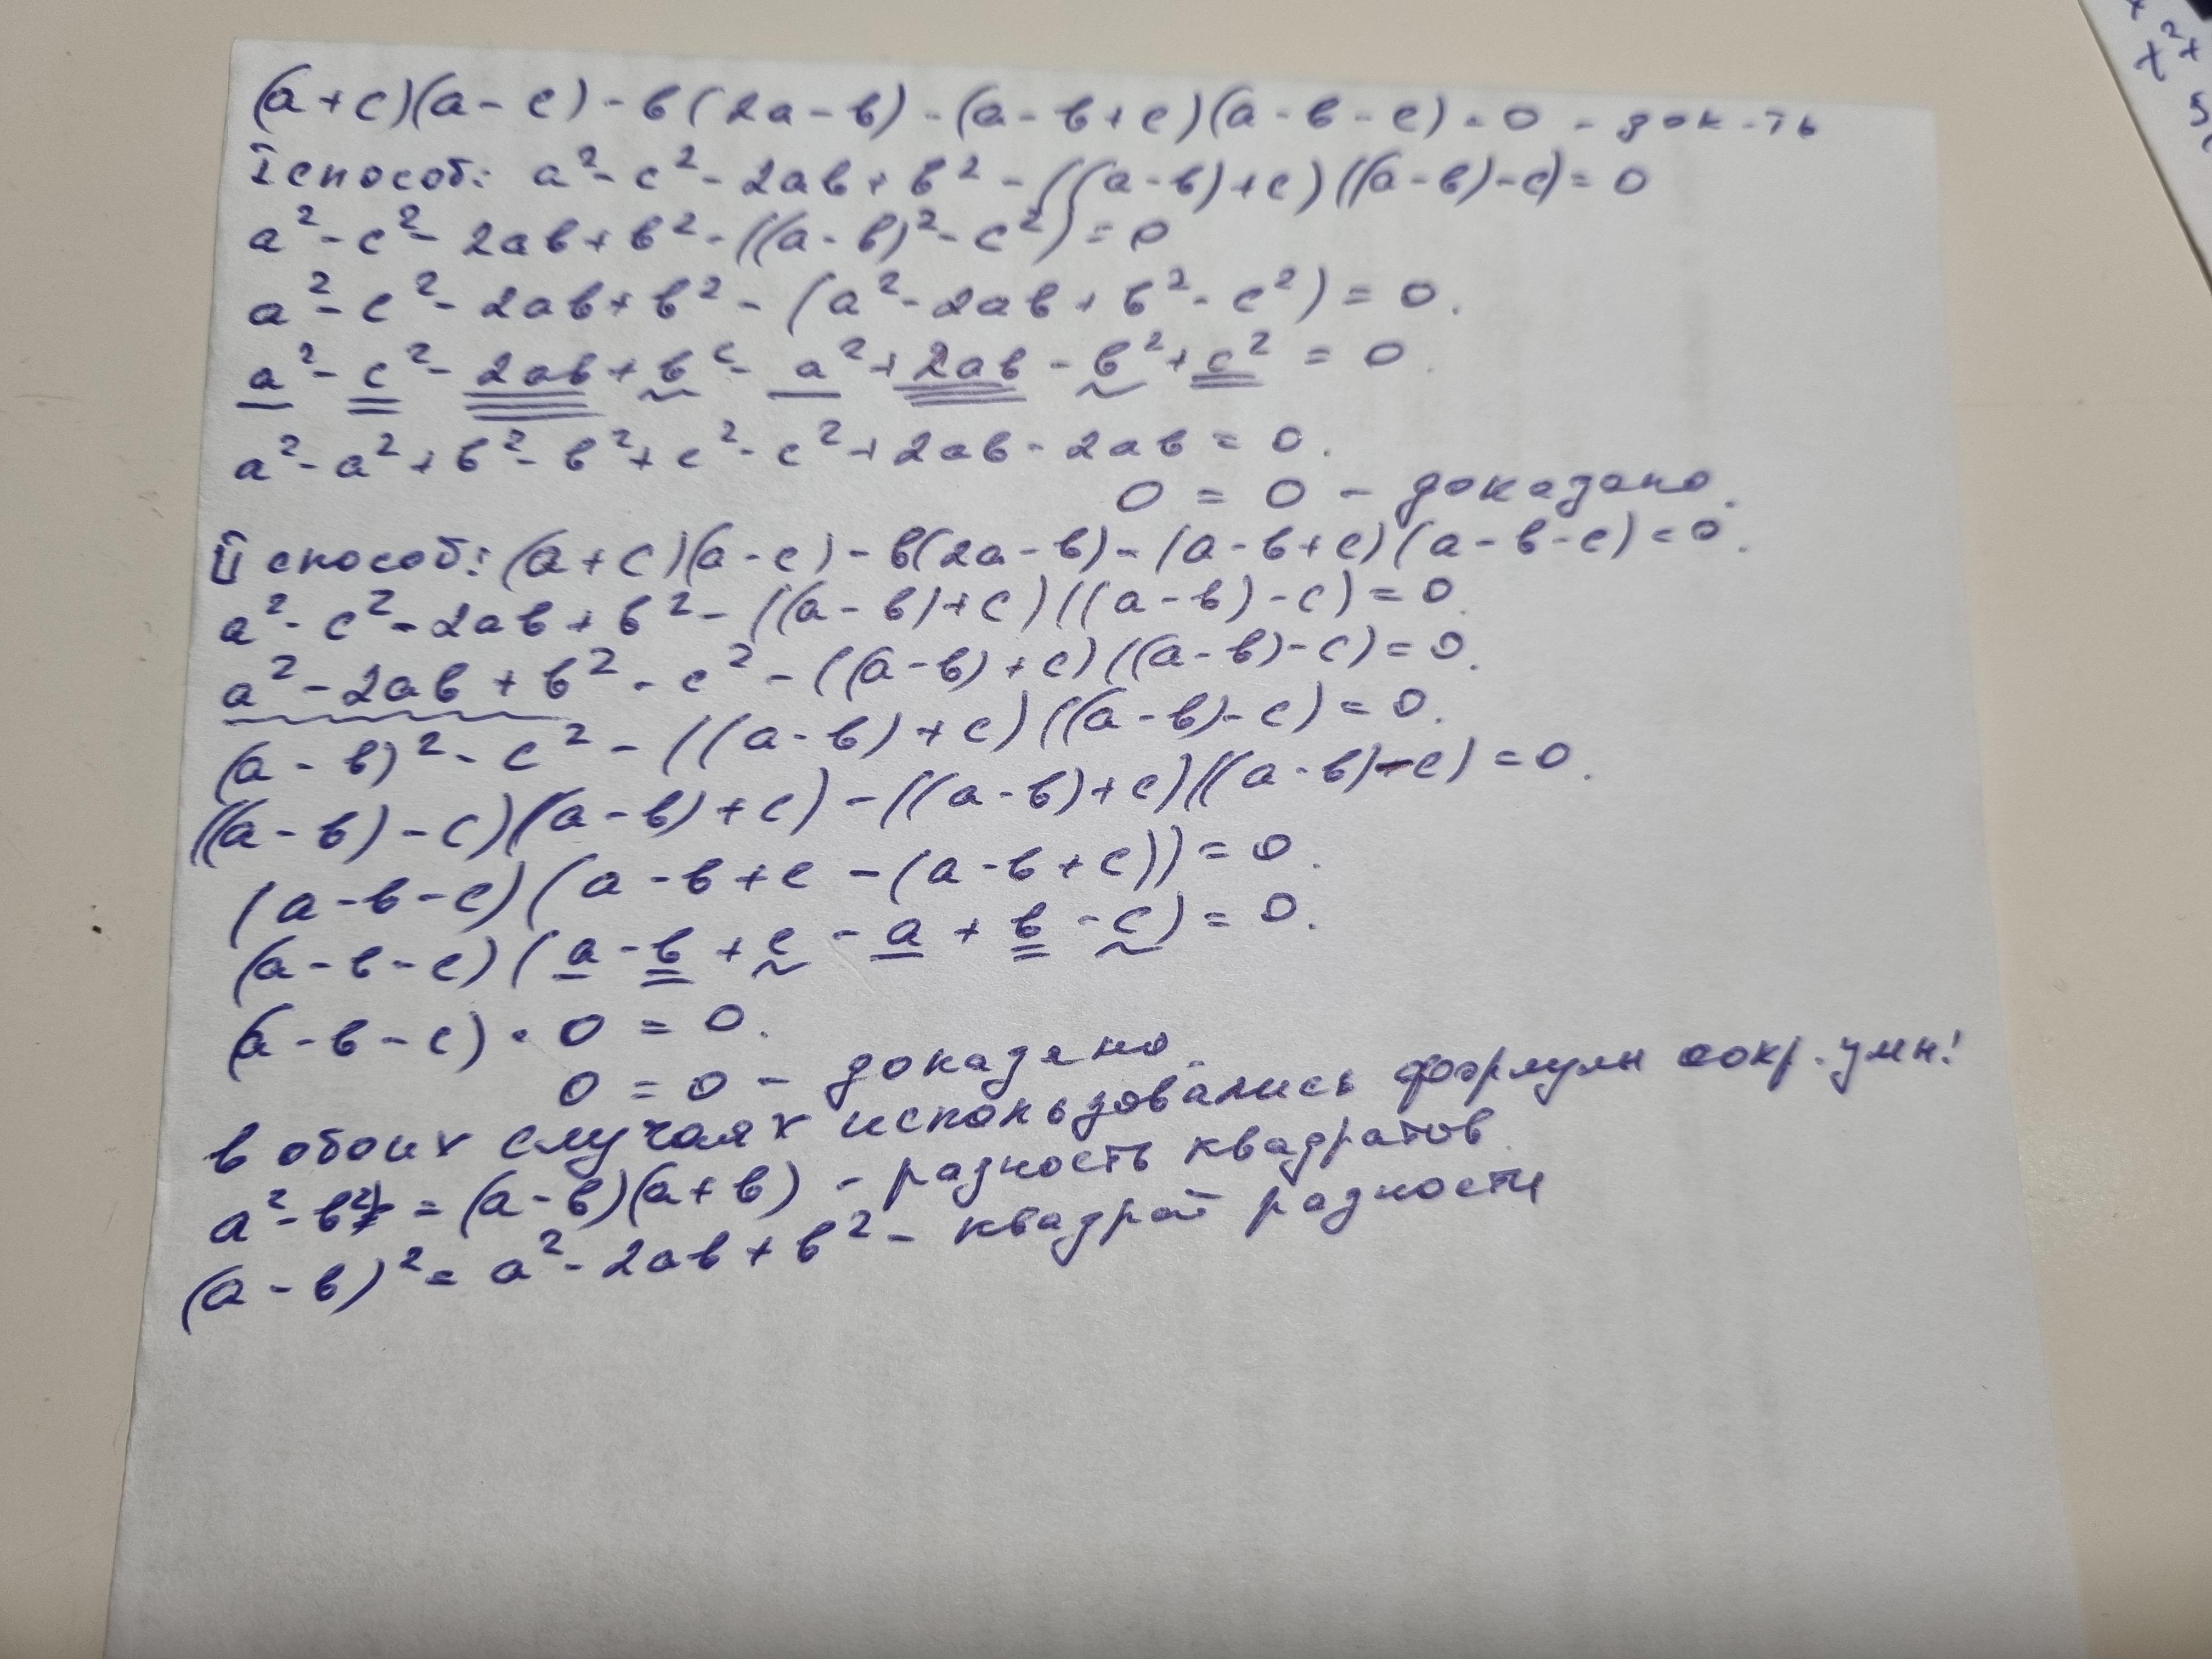 (a+c)(a-c)-в(2a-в)-(a-в+c)(a-в-c)=0 - док-ть
I способ: a²-c²-2aв+в²-((a-в)+c)((a-в)-c)=0
a²-c²-2aв+в²-((a-в)²-c²)=0
a²-c²-2aв+в²-(a²-2aв+в²-c²)=0.
a²-c²-2aв+в²-a²+2aв-в²+c²=0.
a²-a²+в²-в²+c²-c²+2aв-2aв=0.
0=0 - доказано.
II способ: (a+c)(a-c)-в(2a-в)-(a-в+c)(a-в-c)=0.
a²-c²-2aв+в²-((a-в)+c)((a-в)-c)=0.
a²-2aв+в²-c²-((a-в)+c)((a-в)-c)=0.
(a-в)²-c²-((a-в)+c)((a-в)-c)=0.
((a-в)-c)((a-в)+c)-((a-в)+c)((a-в)-c)=0.
(a-в-c)(a-в+c-(a-в+c))=0.
(a-в-c)(a-в+c-a+в-c)=0.
(a-в-c)·0=0.
0=0 - доказано.
в обоих случаях использовались формулы сокр. умн!
a²-в²=(a-в)(a+в) - разность квадратов
(a-в)²=a²-2aв+в² - квадрат разности
x
x²+
5